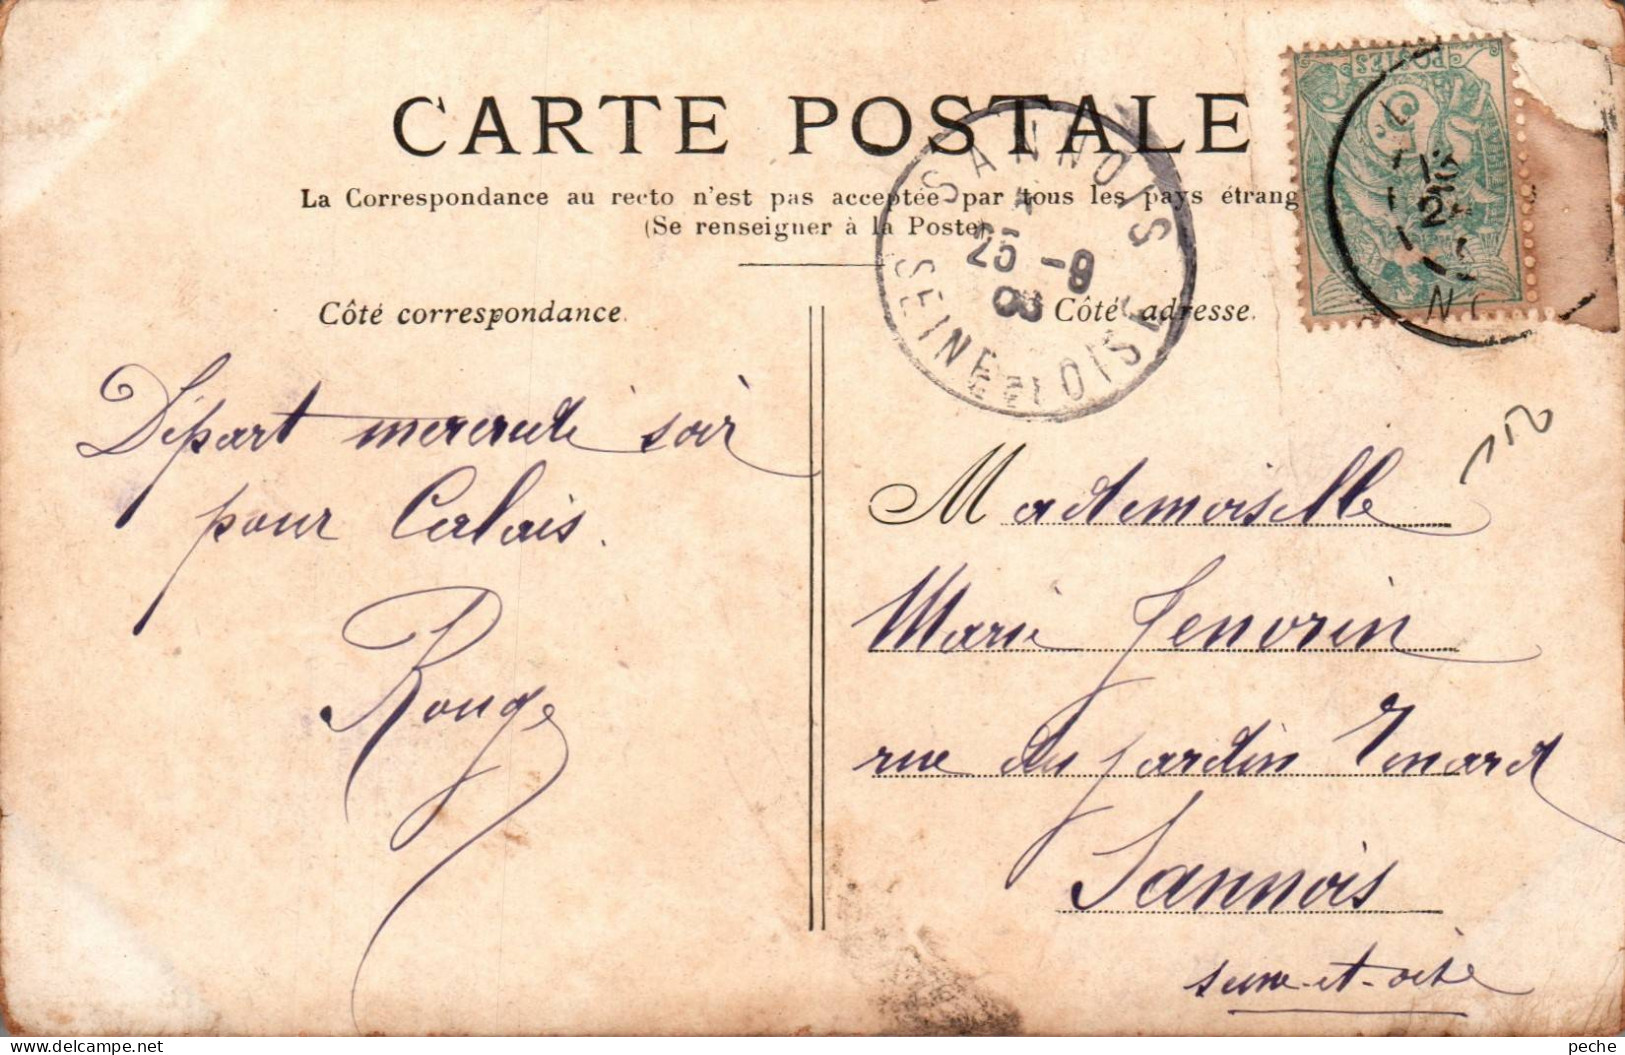 CARTE POSTALE
La Correspondance au recto n'est pas acceptée par tous les pays étrang
(Se renseigner à la Poste)
SANNOIS
25 -9
08
SEINE-ET-OISE
POSTES
5
Côté correspondance.
Côté adresse.
Départ mercredi soir
pour Calais.
Rouge
150
Mademoiselle
Marie Jenorin
rue du jardin Renard
Sannois
seine-et-oise
peche delcampe.net